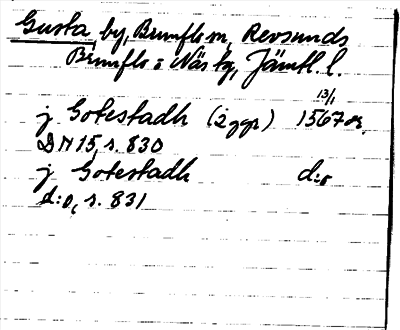 Gusta, by, Brunflo sn, Revsunds
Brunflo o Näs tg, Jämtl. l.
j Gotestadh (2 ggr) 1567 13/1 or.
DN 15, s. 830
j Gotestadh d:o
d:o, s. 831